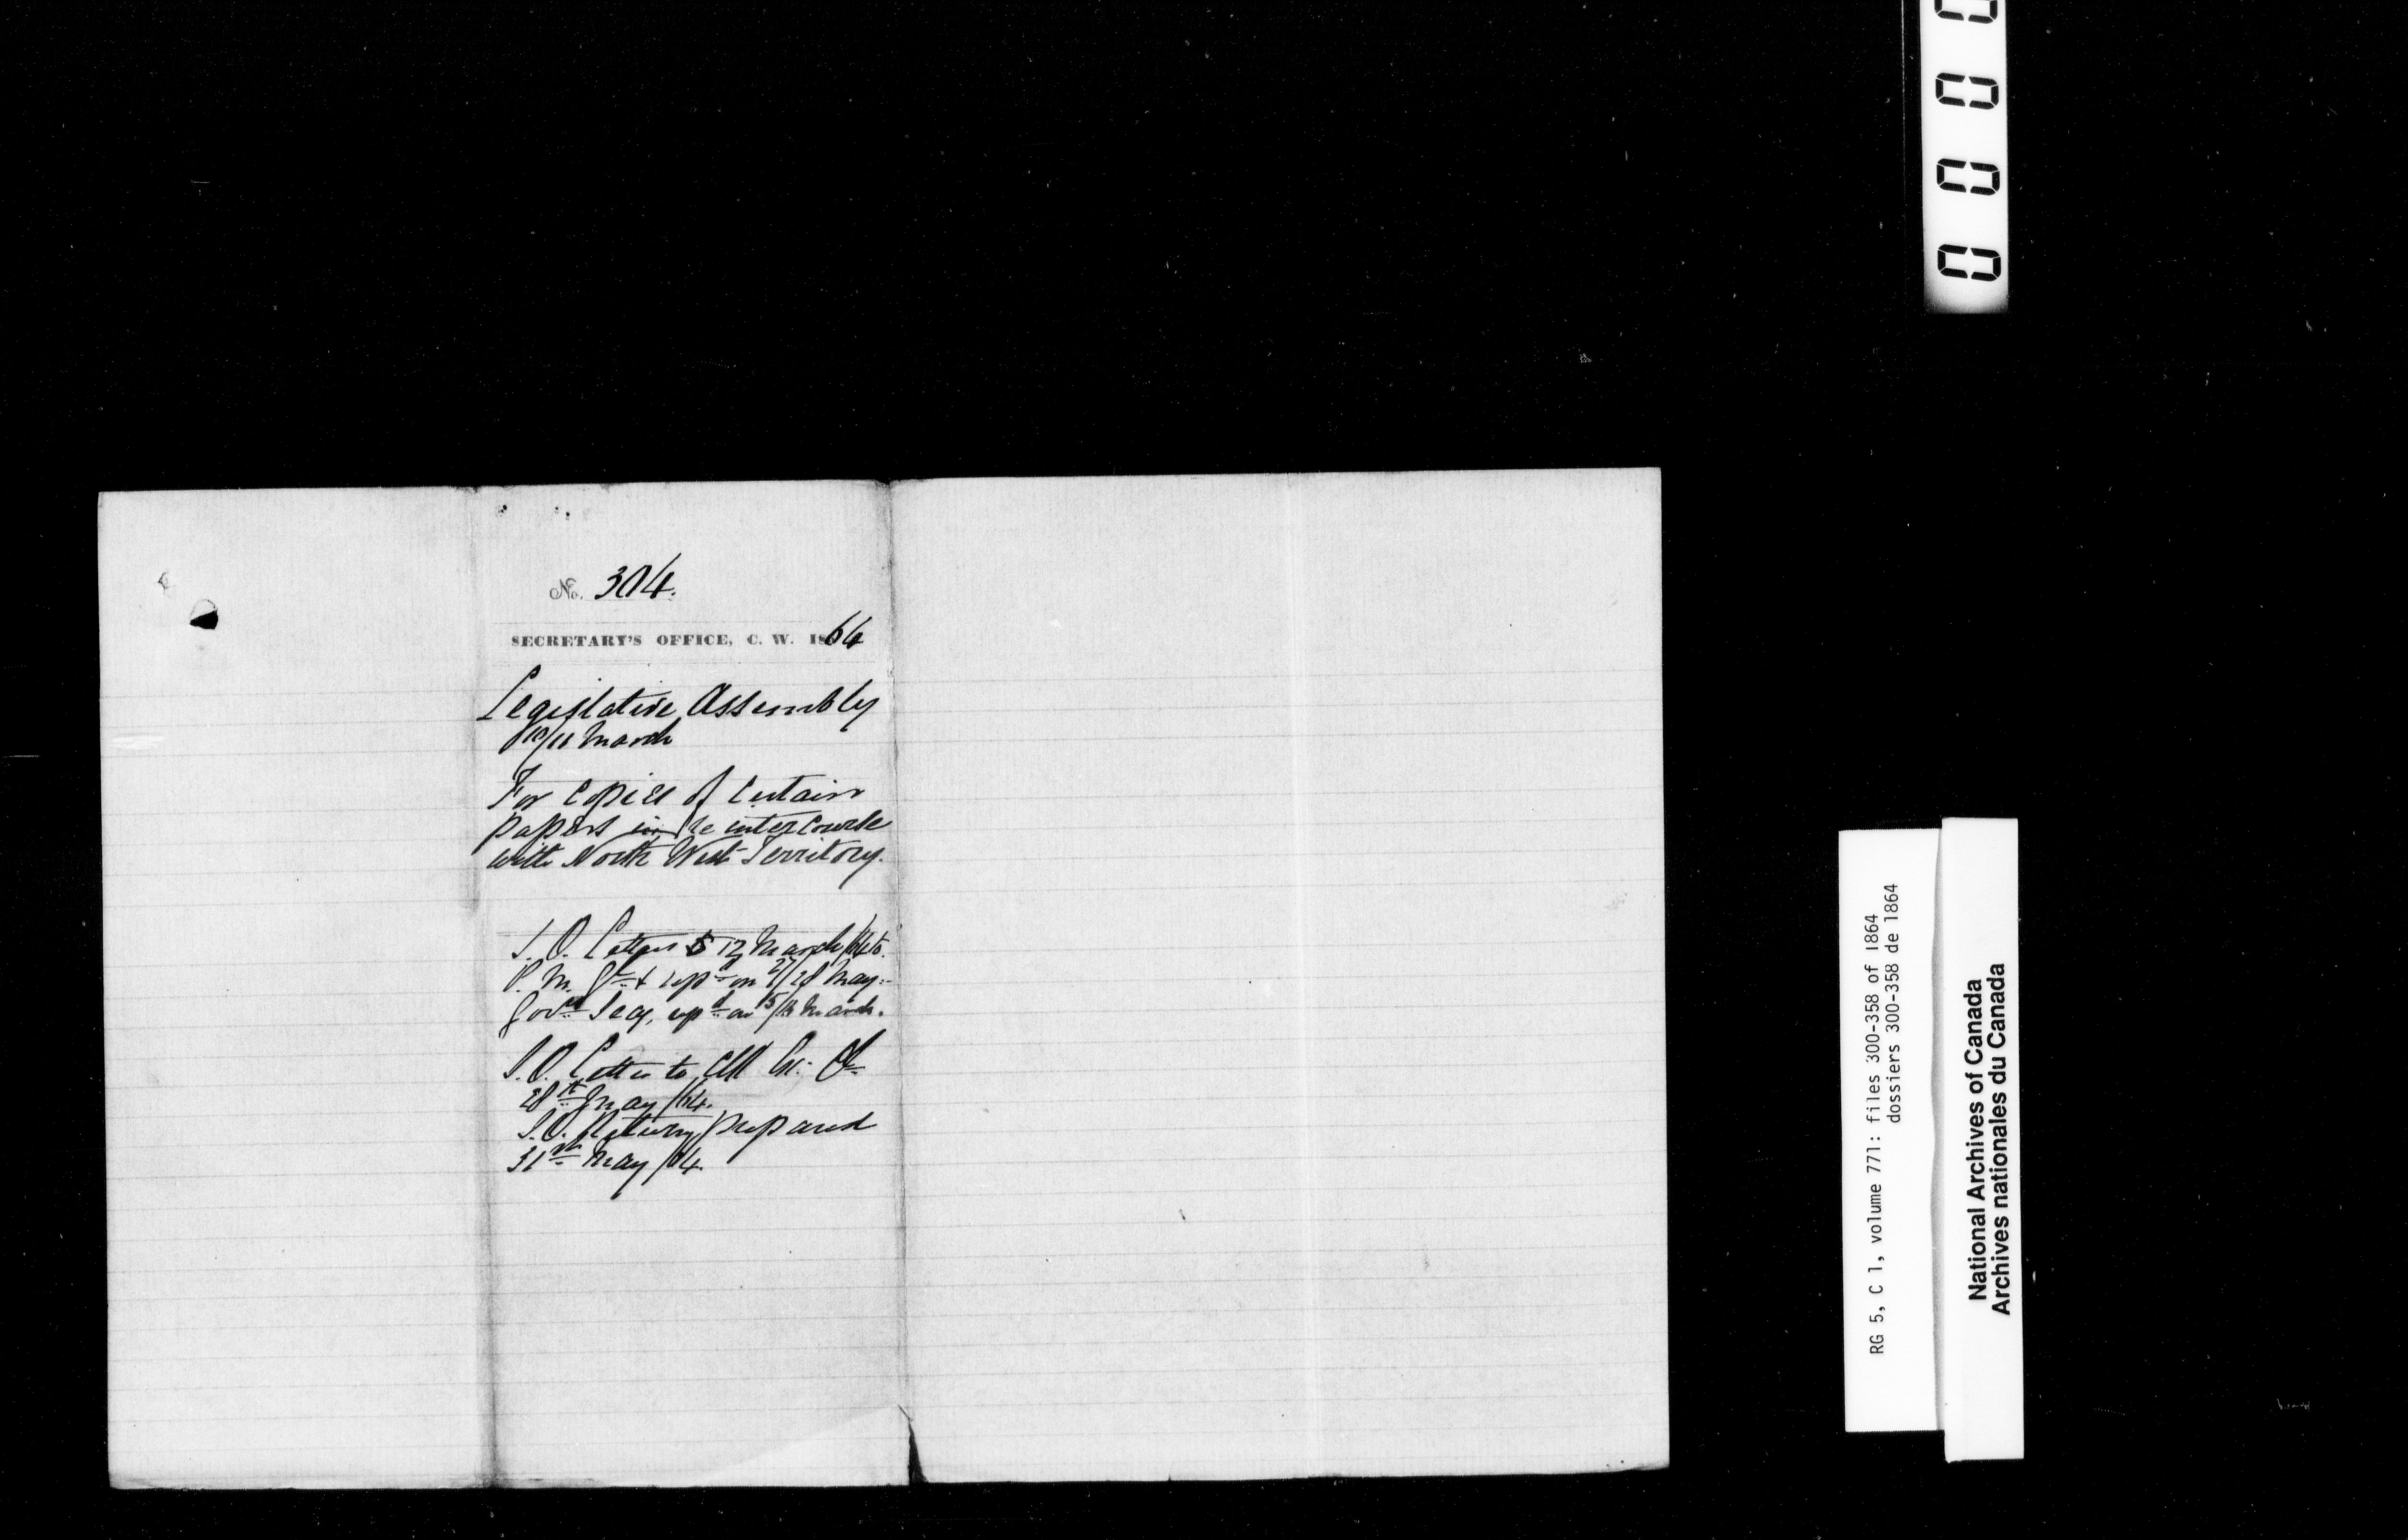 No. 304.
SECRETARY'S OFFICE, C. W. 1864
Legislative Assembly
10/11 March
For copies of certain
papers in re intercourse
with North West Territory.
S. O. Letters 12 March/64 to
P. M. Gl & repd on 27/28 May.
Govrs Secy, repd on 15/16 March.
S. O. Letter to
28th May /64.
S. O. Return prepared
31st May /64
0 0 0 0
RG 5, C 1, volume 771: files 300-358 of 1864
dossiers 300-358 de 1864
National Archives of Canada
Archives nationales du Canada